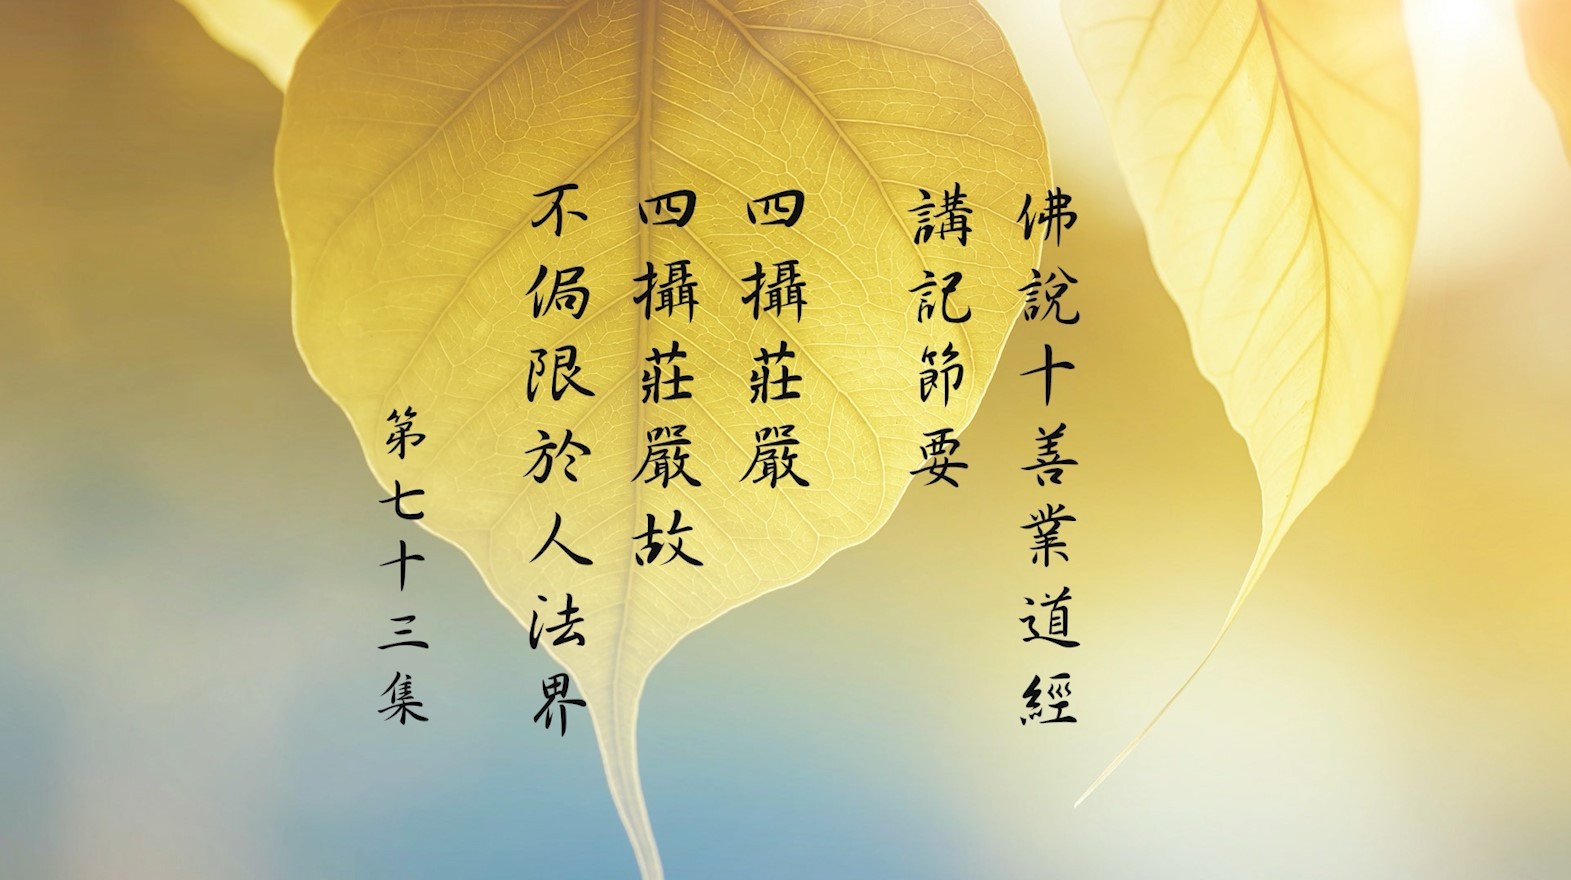 佛說十善業道經
講記節要
四攝莊嚴
四攝莊嚴故
不侷限於人法界
第七十三集